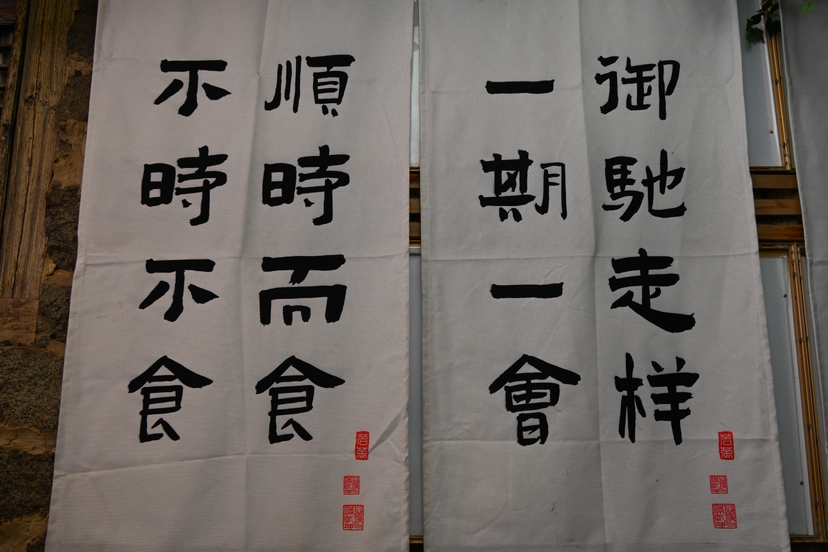 御馳走样
一期一會
順時而食
不時不食